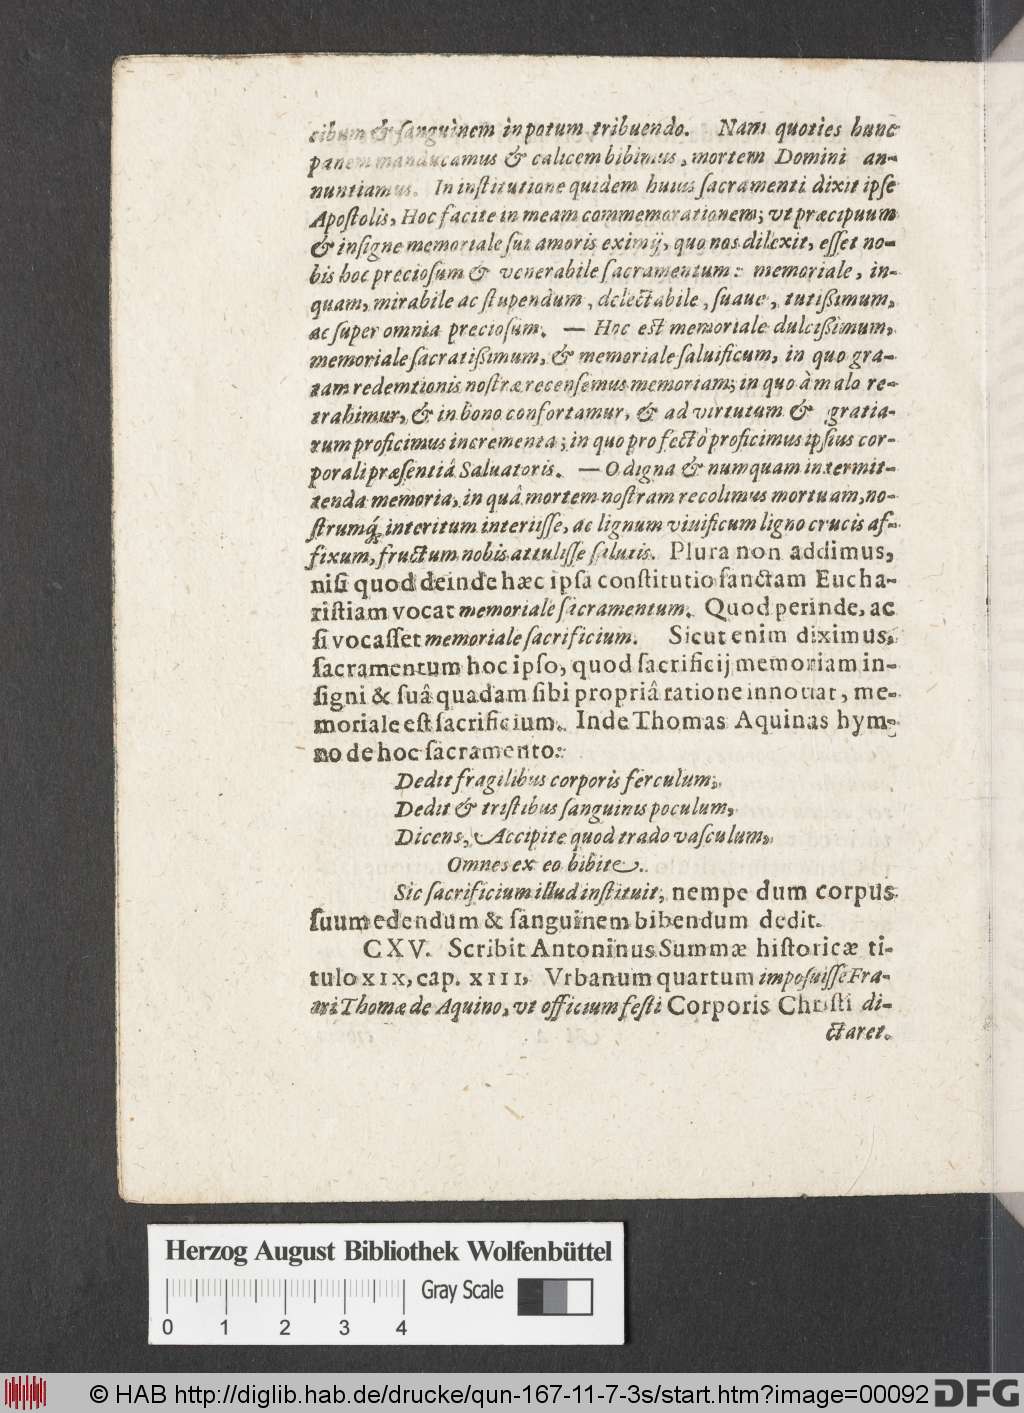 cibum & ſanguinem in potum tribuendo. Nam quoties hunc
panem manducamus & calicem bibimus, mortem Domini an-
nuntiamus. In inſtitutione quidem huius ſacramenti dixit ipſe
Apoſtolis, Hoc facite in meam commemorationem; vt præcipuum
& inſigne memoriale ſui amoris eximij, quo nos dilexit, eſſet no-
bis hoc precioſum & venerabile ſacramentum: memoriale, in-
quam, mirabile ac ſtupendum, delectabile, ſuaue, tutißimum,
ac ſuper omnia precioſum. — Hoc est memoriale dulcißimum,
memoriale ſacratißimum, & memoriale ſaluificum, in quo gra-
tam redemtionis noſtræ recenſemus memoriam; in quo à malo re-
trahimur, & in bono confortamur, & ad virtutum & gratia-
rum proficimus incrementa; in quo profectò proficimus ipſius cor-
porali præſentiâ Saluatoris. — O digna & numquam intermit-
tenda memoria, in quâ mortem noſtram recolimus mortuam, no-
ſtrumq́; interitum interiiſſe, ac lignum viuificum ligno crucis af-
fixum, fructum nobis attuliſſe ſalutis. Plura non addimus,
niſi quod deinde hæc ipſa conſtitutio ſanctam Eucha-
riſtiam vocat memoriale ſacramentum. Quod perinde, ac
ſi vocaſſet memoriale ſacrificium. Sicut enim diximus,
ſacramentum hoc ipſo, quod ſacrificij memoriam in-
ſigni & ſuâ quadam ſibi propriâ ratione innouat, me-
moriale eſt ſacrificium. Inde Thomas Aquinas hym-
no de hoc ſacramento:
Dedit fragilibus corporis ferculum,
Dedit & triſtibus ſanguinis poculum,
Dicens, Accipite quod trado vaſculum,
Omnes ex eo bibite.
Sic ſacrificium illud inſtituit, nempe dum corpus
ſuum edendum & ſanguinem bibendum dedit.
CXV. Scribit Antoninus Summæ hiſtoricæ ti-
tulo XIX, cap. XIII, Vrbanum quartum impoſuiſſe Fra-
tri Thomæ de Aquino, vt officium feſti Corporis Chriſti di-
ctaret.
Herzog August Bibliothek Wolfenbüttel
Gray Scale
0 1 2 3 4
© HAB http://diglib.hab.de/drucke/qun-167-11-7-3s/start.htm?image=00092 DFG